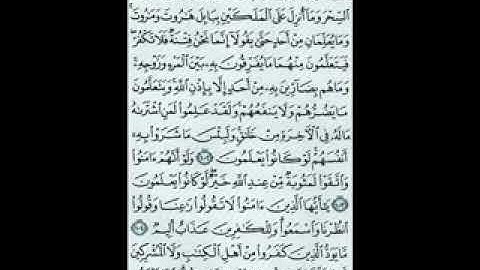 ٱلسِّحْرَ وَمَآ أُنزِلَ عَلَى ٱلْمَلَكَيْنِ بِبَابِلَ هَـٰرُوتَ وَمَـٰرُوتَ
وَمَا يُعَلِّمَانِ مِنْ أَحَدٍ حَتَّىٰ يَقُولَآ إِنَّمَا نَحْنُ فِتْنَةٌ فَلَا تَكْفُرْ
فَيَتَعَلَّمُونَ مِنْهُمَا مَا يُفَرِّقُونَ بِهِۦ بَيْنَ ٱلْمَرْءِ وَزَوْجِهِۦ
وَمَا هُم بِضَآرِّينَ بِهِۦ مِنْ أَحَدٍ إِلَّا بِإِذْنِ ٱللَّهِ وَيَتَعَلَّمُونَ
مَا يَضُرُّهُمْ وَلَا يَنفَعُهُمْ وَلَقَدْ عَلِمُوا۟ لَمَنِ ٱشْتَرَىٰهُ
مَا لَهُۥ فِى ٱلْـَٔاخِرَةِ مِنْ خَلَـٰقٍ وَلَبِئْسَ مَا شَرَوْا۟ بِهِۦٓ
أَنفُسَهُمْ لَوْ كَانُوا۟ يَعْلَمُونَ ١٠٢ وَلَوْ أَنَّهُمْ ءَامَنُوا۟
وَٱتَّقَوْا۟ لَمَثُوبَةٌ مِّنْ عِندِ ٱللَّهِ خَيْرٌ لَّوْ كَانُوا۟ يَعْلَمُونَ
١٠٣ يَـٰٓأَيُّهَا ٱلَّذِينَ ءَامَنُوا۟ لَا تَقُولُوا۟ رَٰعِنَا وَقُولُوا۟
ٱنظُرْنَا وَٱسْمَعُوا۟ وَلِلْكَـٰفِرِينَ عَذَابٌ أَلِيمٌ ١٠٤
مَّا يَوَدُّ ٱلَّذِينَ كَفَرُوا۟ مِنْ أَهْلِ ٱلْكِتَـٰبِ وَلَا ٱلْمُشْرِكِينَ